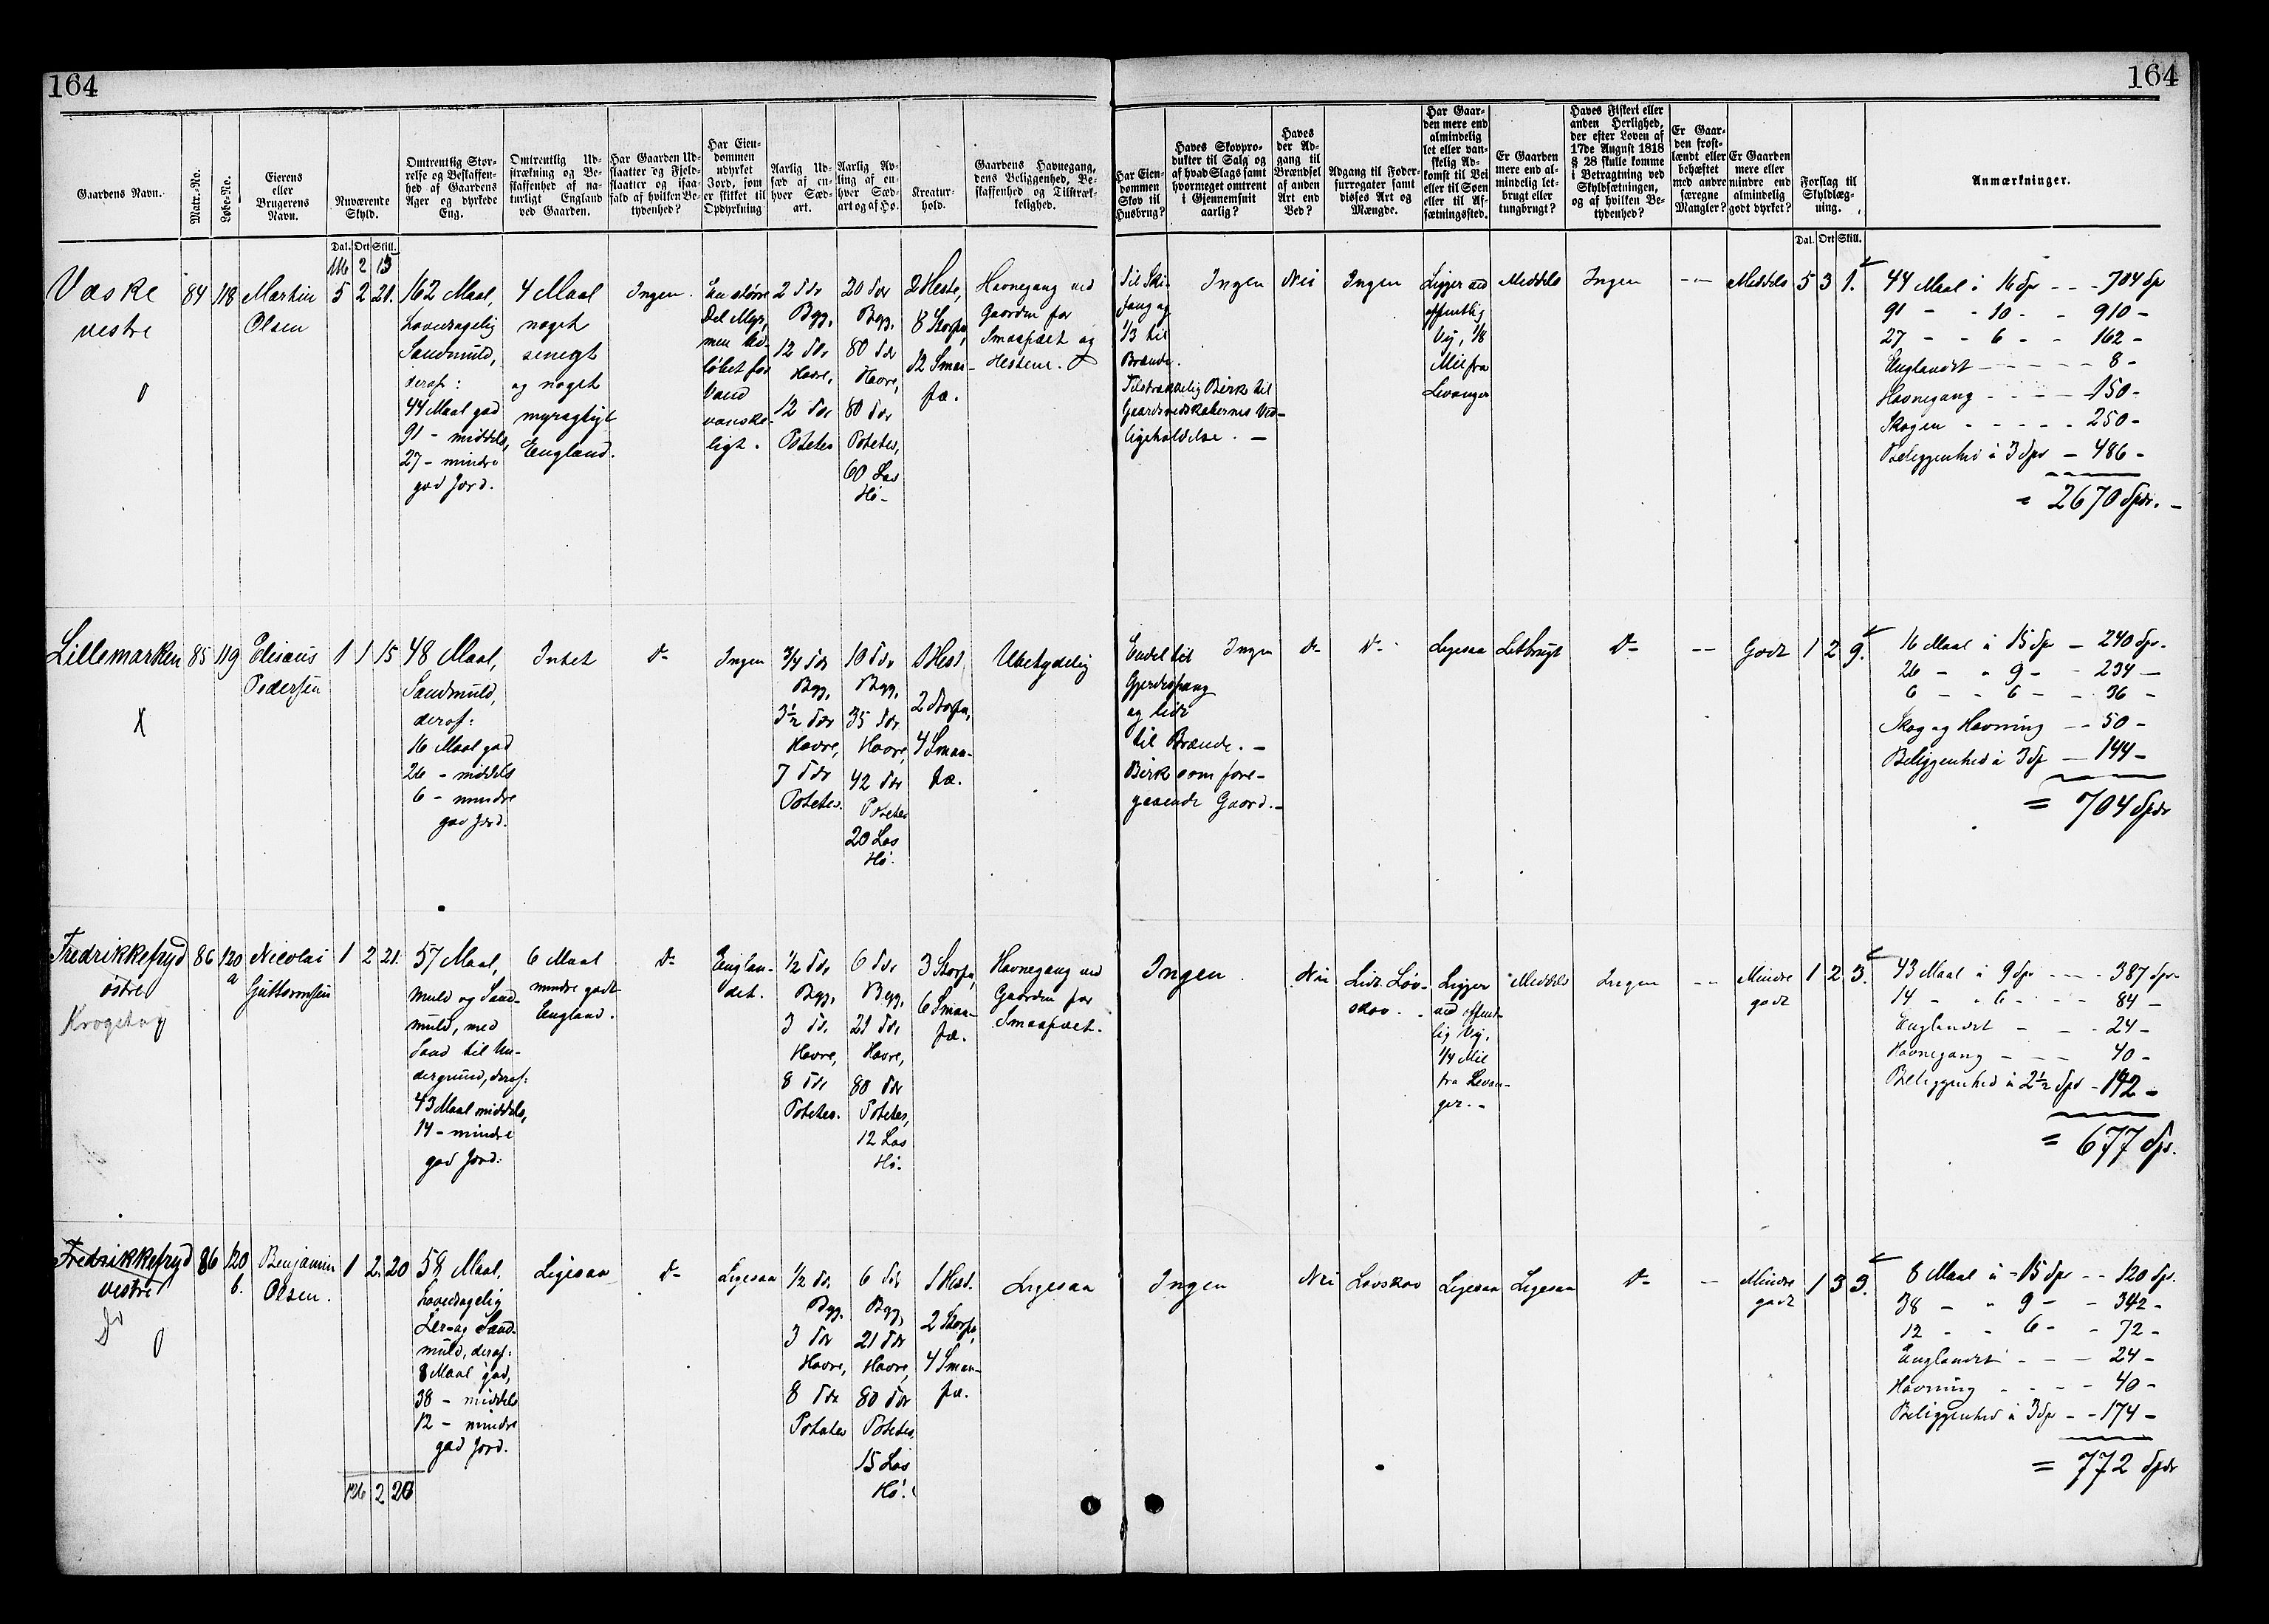 164
164
Gaardens Navn.
Matr.-No.
Løbe-No.
Eierens eller Brugerens Navn.
Nuværende Skyld.
Omtrentlig Størrelse og Beskaffenhed af Gaardens Ager og dyrkede Eng.
Omtrentlig Udstrækning og Beskaffenhed af naturligt England ved Gaarden.
Har Gaarden Udslaatter og Fjeldslaatter og isaafald af hvilken Betydenhed?
Har Eiendommen udyrket Jord, som er skikket til Opdyrkning
Aarlig Udsæd af enhver Sædart.
Aarlig Avling af enhver Sædart og af Hø.
Kreaturhold.
Gaardens Havnegang, dens Beliggenhed, Beskaffenhed og Tilstrækkelighed.
Har Eiendommen Skov til Husbrug?
Haves Skovprodukter til Salg og af hvad Slags samt hvormeget omtrent i Gjennemsnit aarlig?
Haves der Adgang til Brændsel af anden Art end Ved?
Adgang til Fodersurregater samt disses Art og Mængde.
Har Gaarden mere end almindelig let eller vanskelig Adkomst til Vei eller til Søen eller til Afsætningssted.
Er Gaarden mere end almindelig letbrugt eller tungbrugt?
Haves Fiskeri eller anden Herlighed, der efter Loven af 17de August 1818 § 28 skulle komme i Betragtning ved Skyldsætningen, og af hvilken Betydenhed?
Er Gaarden frostlændt eller behæftet med andre særegne Mangler?
Er Gaarden mere eller mindre end almindelig godt dyrket?
Forslag til Skyldlægning.
Anmærkninger.
Dal. Ort Skill.
Dal. Ort Skill.
116 2 15
Væske vestre
84
118
Martin Olsen
5 2 21.
162 Maal,
hovedsagelig
Sandmuld,
deraf:
44 Maal god
91 - middels,
27 - mindre
god Jord.
4 Maal
noget
senegt
og noget
myragtigt
England.
Ingen.
En større
Del Myr,
men Udløbet for
Vand
vanskeligt.
2 Tdr
Byg,
12 Tdr
Havre,
12 Tdr
Poteter
20 Tdr
Byg,
80 Tdr
Havre,
80 Tdr
Poteter,
60 Læs
Hø-
2 Heste,
8 Storfæ,
12 Smaafæ.
Havnegang ved
Gaarden for
Smaafæet og
Hestene.
Til Skifang og
1/3 til
Brænde.
Tilstrækkelig Birk til
Gaardsredskabernes Vedligeholdelse. -
Ingen
Nei
Ingen
Ligger ved
offentlig
Vej, 1/8
Mil fra
Levanger
Middels
Ingen
--
Middels
5 3 1.
44 Maal à 16 Sp - - - 704 Sp
91 - - 10 - - 910 -
27 - - 6 - - 162 -
Englandet - - - - - 8 -
Havnegang - - - - 150 -
Skogen - - - - - 250 -
Beliggenhed à 3 Spd - 486 -
= 2670 Spdr. -
Lillemarken
X
85
119
Elisæus
Pedersen
1 1 15
48 Maal,
Sandmuld,
deraf:
16 Maal god
26 - middels
6 - mindre
god Jord.
Intet
Do
Ingen
3/4 Tdr
Byg,
3½ Tdr
Havre,
7 Tdr
Poteter.
10 Tdr
Byg,
35 Tdr
Havre,
42 Tdr
Poteter
20 Læs
Hø.
1 Hest
2 Storfæ,
4 Smaafæ.
Ubetydelig
Endel til
Gjerdesfang
og lidt
til Brænde. -
Birk som foregaaende Gaard. -
Ingen
Do
Do
Ligesaa
Letbrugt
Do
--
Godt
1 2 9.
16 Maal à 15 Sp - 240 Sp.
26 - - 9 - - 234 -
6 - - 6 - - 36 -
Skog og Havning - - 50 -
Beliggenhed à 3 Sp - 144 -
= 704 Spdr
Fredrikkefryd
østre
Krogehaug
86
120
a
Nicolai
Guttormsen
1 2 21.
57 Maal,
Muld og Sandmuld, med
Sand til Undergrund, deraf:
43 Maal middels,
14 - mindre
god Jord.
6 Maal
mindre godt
England.
Do
Englandet.
1/2 Tdr
Byg,
3 Tdr
Havre,
8 Tdr
Poteter.
6 Tdr
Byg,
21 Tdr
Havre,
80 Tdr
Poteter,
12 Læs
Hø.
3 Storfæ,
6 Smaafæ.
Havnegang ved
Gaarden for
Smaafæet.
Ingen
Nei
Lidt Løvskov.
Ligger
ved offentlig Vej,
1/4 Mil
fra Levanger. -
Middels
Ingen
--
Mindre
godt
1 2 3.
43 Maal à 9 Sp - - - 387 Spr
14 - - 6 - - - 84 -
Englandet - - - 24 -
Havnegang - - - 40 -
Beliggenhed à 2½ Spd - 142 -
= 677 Sp.
Fredrikkefryd
vestre
Do
86
120
b.
Benjamin
Olsen.
1 2 20
58 Maal,
hovedsagelig
Ler- og Sandmuld, deraf:
8 Maal god,
38 - middels
12 - mindre
god Jord.
Ligesaa
Do
Ligesaa
1/2 Tdr
Byg.
3 Tdr
Havre,
8 Tdr
Poteter
6 Tdr
Byg,
21 Tdr
Havre,
80 Tdr
Poteter
15 Læs
Hø.
1 Hest.
2 Storfæ,
4 Smaafæ.
Ligesaa
Ingen
Nei
Løvskov
Ligesaa
Ligesaa
Do
--
Mindre
godt
1 3 3.
8 Maal à 15 Sp - - 120 Sp.
38 - - 9 - - 342 -
12 - - 6 - - 72 -
Englandet - - - 24 -
Havning - - - - 40 -
Beliggenhed à 3 Sp - - 174 -
= 772 Spdr
126 2 20